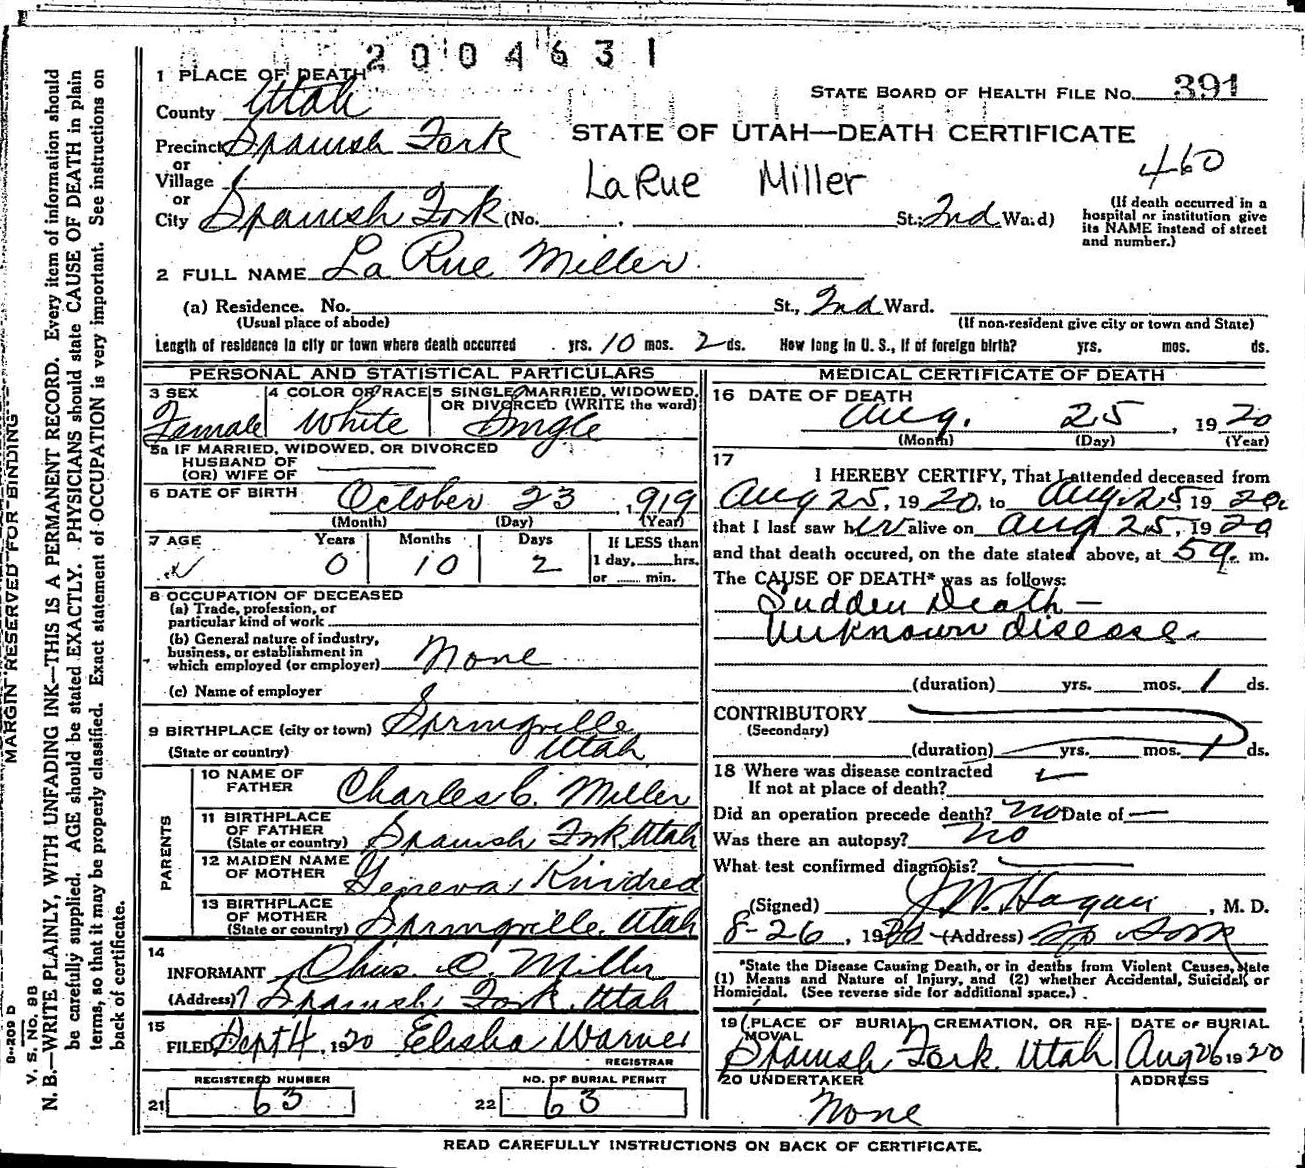 2004631
1 PLACE OF DEATH
County Utah
STATE BOARD OF HEALTH FILE No. 391
Precinct Spanish Fork
STATE OF UTAH—DEATH CERTIFICATE
or
Village
LaRue Miller
460
or
City Spanish Fork (No. St.; 2nd Ward)
(If death occurred in a hospital or institution give its NAME instead of street and number.)
2 FULL NAME La Rue Miller
(a) Residence. No. St., 2nd Ward.
(Usual place of abode) (If non-resident give city or town and State)
Length of residence in city or town where death occurred yrs. 10 mos. 2 ds. How long in U. S., if of foreign birth? yrs. mos. ds.
PERSONAL AND STATISTICAL PARTICULARS
3 SEX Female
4 COLOR OR RACE White
5 SINGLE, MARRIED, WIDOWED, OR DIVORCED (WRITE the word) Single
5a IF MARRIED, WIDOWED, OR DIVORCED
HUSBAND OF
(OR) WIFE OF
6 DATE OF BIRTH October 23, 1919
(Month) (Day) (Year)
7 AGE Years Months Days If LESS than
0 10 2 1 day, hrs.
or min.
8 OCCUPATION OF DECEASED
(a) Trade, profession, or
particular kind of work
(b) General nature of industry,
business, or establishment in
which employed (or employer) None
(c) Name of employer
9 BIRTHPLACE (city or town) Springville
(State or country) Utah
PARENTS
10 NAME OF FATHER Charles C. Miller
11 BIRTHPLACE OF FATHER
(State or country) Spanish Fork, Utah
12 MAIDEN NAME OF MOTHER Geneva Kindred
13 BIRTHPLACE OF MOTHER
(State or country) Springville, Utah
14
INFORMANT Chas. C. Miller
(Address) Spanish Fork, Utah
15
FILED Sept 4, 1920 Elisha Warner
REGISTRAR
REGISTERED NUMBER
21 63
NO. OF BURIAL PERMIT
22 63
MEDICAL CERTIFICATE OF DEATH
16 DATE OF DEATH
Aug. 25, 1920
(Month) (Day) (Year)
17
I HEREBY CERTIFY, That I attended deceased from
Aug 25, 1920, to Aug. 25, 1920
that I last saw her alive on Aug 25, 1920
and that death occured, on the date stated above, at 5 a. m.
The CAUSE OF DEATH* was as follows:
Sudden Death —
Unknown disease.
(duration) yrs. mos. 1 ds.
CONTRIBUTORY
(Secondary)
(duration) yrs. mos. 1 ds.
18 Where was disease contracted
If not at place of death?
Did an operation precede death? no Date of —
Was there an autopsy? no
What test confirmed diagnosis?
(Signed) J. W. Hagan, M. D.
8-26, 1920 (Address) Sp Fork
*State the Disease Causing Death, or in deaths from Violent Causes, state
(1) Means and Nature of Injury, and (2) whether Accidental, Suicidal, or
Homicidal. (See reverse side for additional space.)
19 PLACE OF BURIAL, CREMATION, OR REMOVAL
Spanish Fork, Utah
DATE OF BURIAL
Aug 26 1920
20 UNDERTAKER
None
ADDRESS
READ CAREFULLY INSTRUCTIONS ON BACK OF CERTIFICATE.
MARGIN RESERVED FOR BINDING
V. S. No. 98
N. B.—WRITE PLAINLY, WITH UNFADING INK—THIS IS A PERMANENT RECORD. Every item of information should
be carefully supplied. AGE should be stated EXACTLY. PHYSICIANS should state CAUSE OF DEATH in plain
terms, so that it may be properly classified. Exact statement of OCCUPATION is very important. See instructions on
back of certificate.